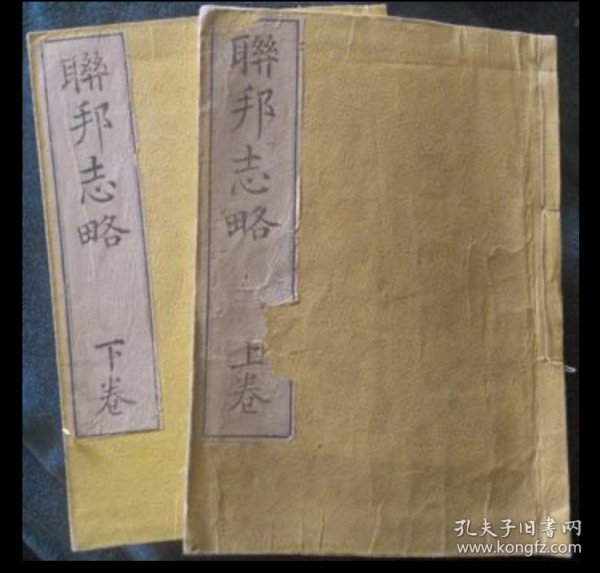 聯邦志略 下卷
聯邦志略 上卷
孔夫子旧書网
www.kongfz.com